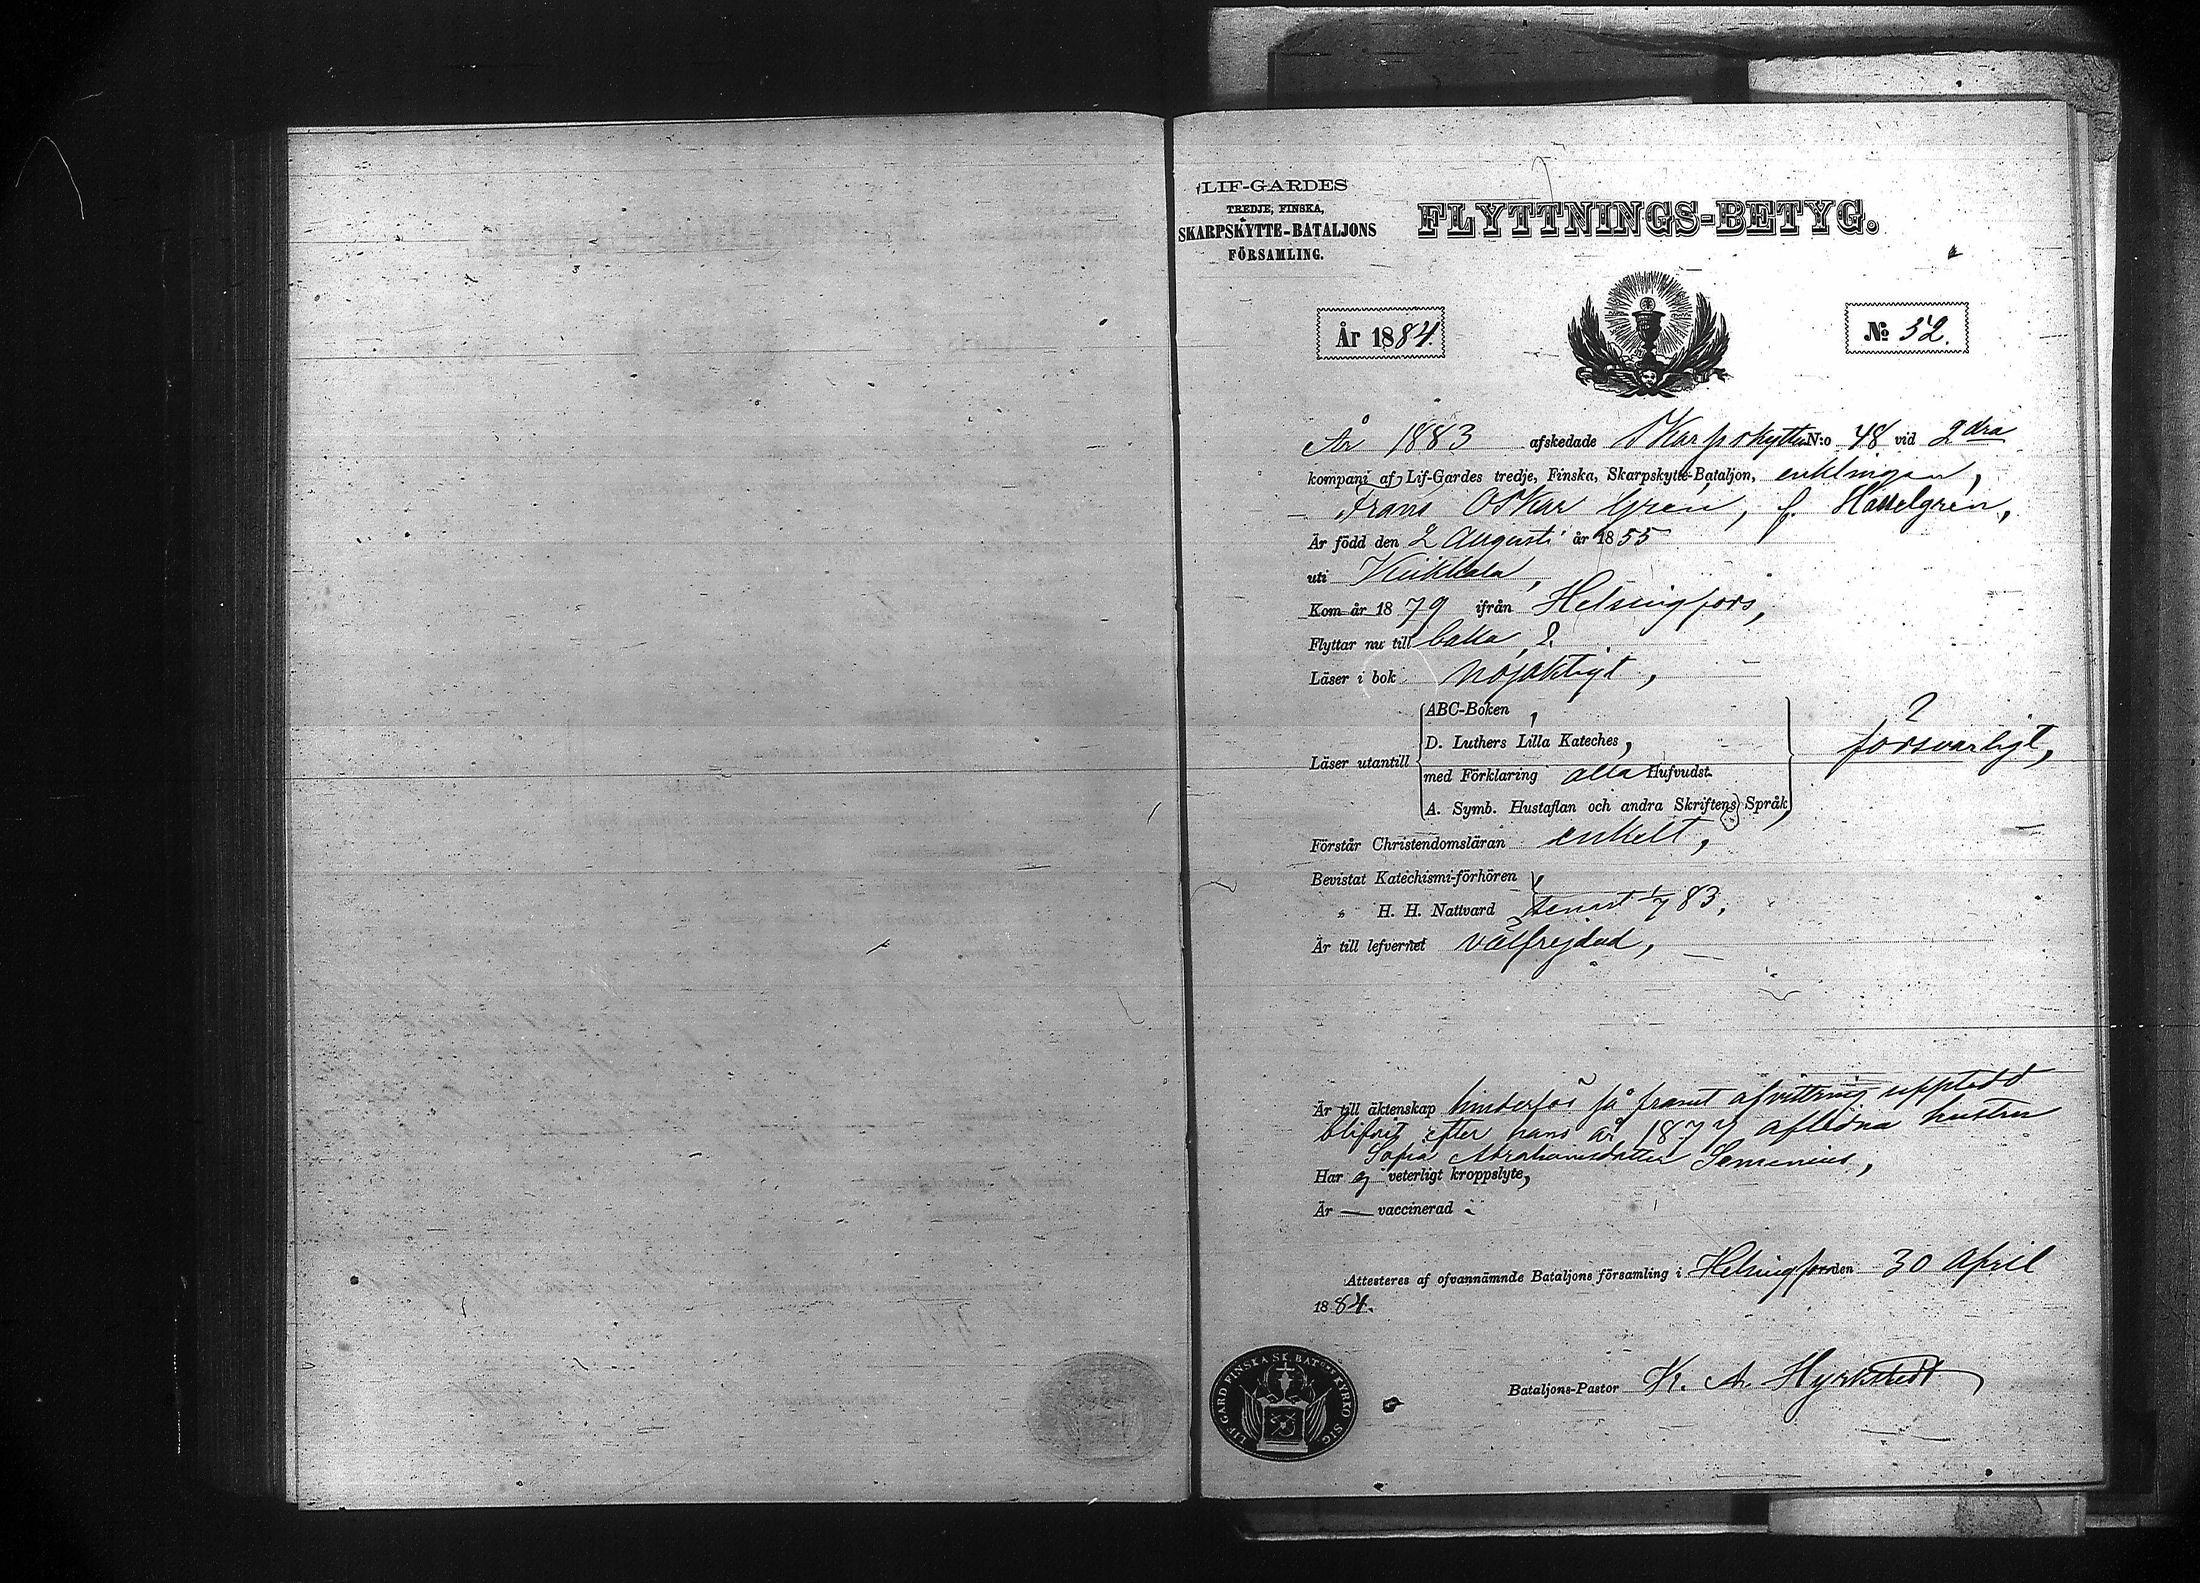 LIF-GARDES
TREDJE, FINSKA,
SKARPSKYTTE-BATALJONS
FÖRSAMLING.
FLYTTNINGS-BETYG.
År 1884.
No 52.
År 1883 afskedade Skarpskytten N:o 48 vid 2dra
kompani af Lif-Gardes tredje, Finska, Skarpskytte-Bataljon, enklingen,
Frans Oskar Grén, f. Hasselgrén,
Är född den 2 Augusti år 1855
uti
Kom år 1879 ifrån Helsingfors,
Flyttar nu till baka,
Läser i bok nöjaktigt,
Läser utantill
ABC-Boken,
D. Luthers Lilla Kateches,
med Förklaring alla Hufvudst.
A. Symb. Hustaflan och andra Skriftens Språk,
försvarligt,
Förstår Christendomsläran enkelt,
Bevistat Katechismi-förhören
„ H. H. Nattvard senast 1/7 83,
Är till lefvernet välfrejdad,
Är till äktenskap hinderlös så framt afvittring uppstådd
blifvit efter hans år 1877 aflidna hustru
Sofia Abrahamsdotter
Har ej veterligt kroppslyte,
Är — vaccinerad
Attesteras af ofvannämnde Bataljons församling i Helsingfors den 30 April
1884.
Bataljons-Pastor K. A. Hyrkstedt
LIF GARD FINSKA SK. BAT:NS KYRKO SIG